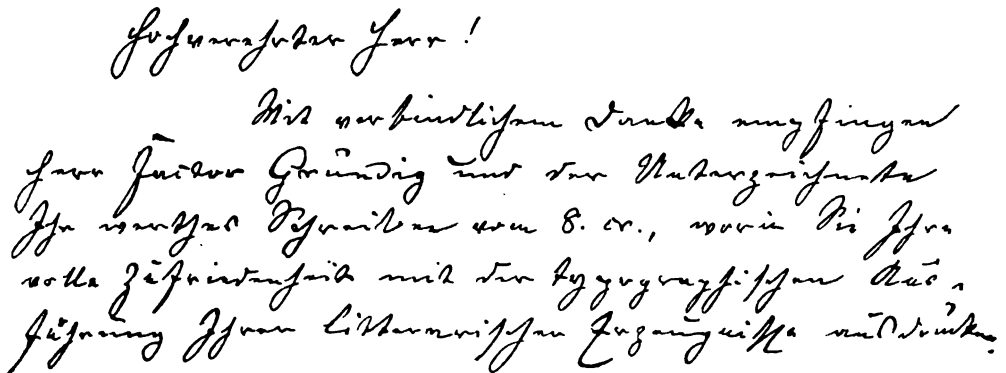 Hochverehrter Herr!
Mit verbindlichem Danke empfingen
Herr Factor Gründig und der Unterzeichnete
Ihr werthes Schreiben vom 8. cr., worin Sie Ihre
volle Zufriedenheit mit der typographischen Aus-
führung Ihrer litterarischen Erzeugnisse ausdrücken.